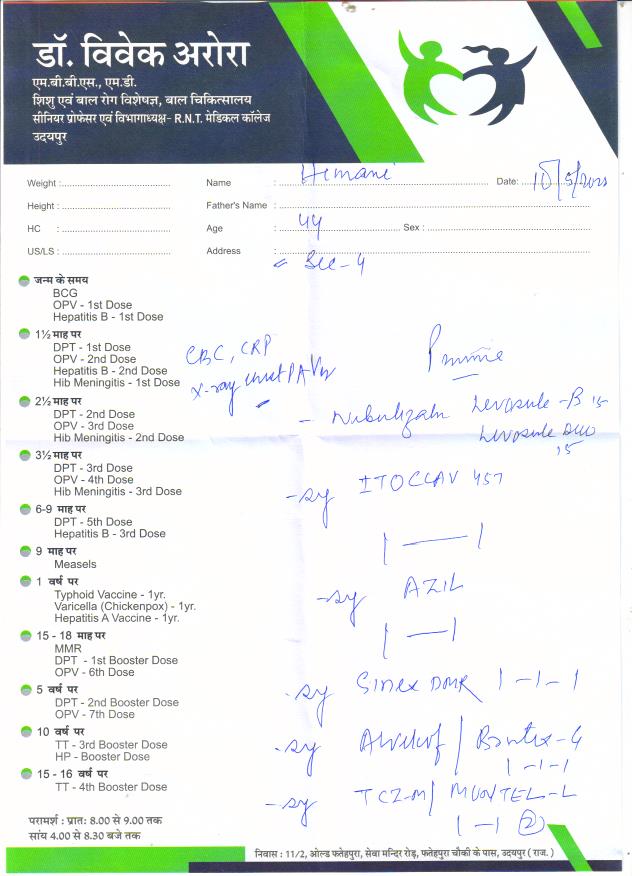 डॉ. विवेक अरोरा
एम.बी.बी.एस., एम.डी.
शिशु एवं बाल रोग विशेषज्ञ, बाल चिकित्सालय
सीनियर प्रोफेसर एवं विभागाध्यक्ष- R.N.T. मेडिकल कॉलेज
उदयपुर
Weight : Name : Himani Date: 10/5/2023
Height : Father's Name :
HC : Age : 4Y Sex :
US/LS : Address :
Sec-4
जन्म के समय
BCG
OPV - 1st Dose
Hepatitis B - 1st Dose
1½ माह पर
DPT - 1st Dose
OPV - 2nd Dose
Hepatitis B - 2nd Dose
Hib Meningitis - 1st Dose
CBC, CRP
X-ray chest PA View
2½ माह पर
DPT - 2nd Dose
OPV - 3rd Dose
Hib Meningitis - 2nd Dose
- Levosule -B 15
Levosule Duo
15
3½ माह पर
DPT - 3rd Dose
OPV - 4th Dose
Hib Meningitis - 3rd Dose
- sy ITOCLAV 457
1 — 1
6-9 माह पर
DPT - 5th Dose
Hepatitis B - 3rd Dose
9 माह पर
Measels
1 वर्ष पर
Typhoid Vaccine - 1yr.
Varicella (Chickenpox) - 1yr.
Hepatitis A Vaccine - 1yr.
- sy AZIL
1 — 1
15 - 18 माह पर
MMR
DPT - 1st Booster Dose
OPV - 6th Dose
5 वर्ष पर
DPT - 2nd Booster Dose
OPV - 7th Dose
- sy Sinex DMR 1 - 1 - 1
10 वर्ष पर
TT - 3rd Booster Dose
HP - Booster Dose
- sy
1 - 1 - 1
15 - 16 वर्ष पर
TT - 4th Booster Dose
- sy TCZ-M/ MUNTEL-L
1 - 1 2
परामर्श : प्रातः 8.00 से 9.00 तक
सांय 4.00 से 8.30 बजे तक
निवास : 11/2, ओल्ड फतेहपुरा, सेवा मन्दिर रोड़, फतेहपुरा चौकी के पास, उदयपुर ( राज. )